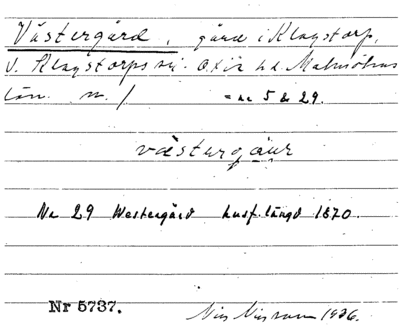 Västergård, gård i Klagstorp,
V. Klagstorps sn. Oxie hd. Malmöhus
län. m. / = nr 5 & 29.
västergaur
No 29 Westergård husf. längd 1870.
Nr 5737. Nils Nilsson 1926.